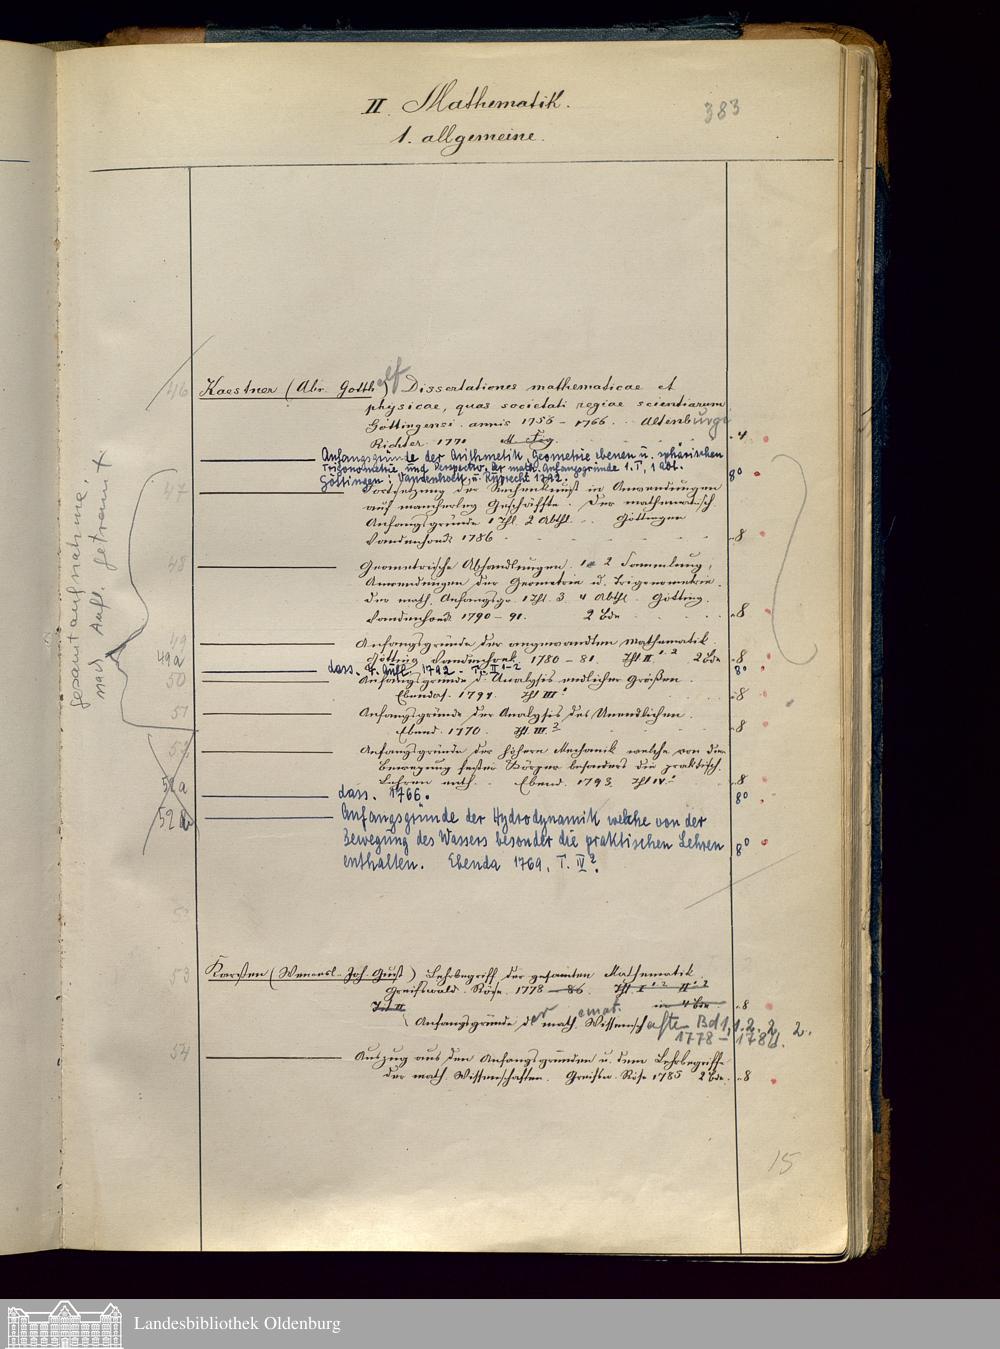 II. Mathematik.
383
1. allgemeine.
46 Kaestner (Abr. Gotthelf) Dissertationes mathematicae et
physicae, quas societati regiae scientiarum
Göttingensi annis 1756 - 1766. Altenburgi
Richter. 1771 M. Fig. 4
Anfangsgründe der Arithmetik, Geometrie ebenen u. sphärischen
Trigonometrie und Perspectiv. Der math. Anfangsgründe 1. T, 1 Abt.
Göttingen: Vandenhoek u. Ruprecht 1792. 8°
47 Fortsetzung der Rechenkunst in Anwendungen
auf mancherley Geschäffte. Der mathematisch.
Anfangsgründe 1 Thl. 2 Abthl. Göttingen
Vandenhoek 1786 8
48 Geometrische Abhandlungen. 1 2 Sammlung,
Anwendungen der Geometrie u. Trigonometrie.
Der math. Anfangsgr. 1 Thl. 3. 4 Abthl. Götting.
Vandenhoek 1790 - 91. 2 Bde 8
49 Anfangsgründe der angewandten Mathematik.
Götting Vandenhoek 1780 - 81. Thl II. 1. 2 2 Bde 8
49a dass. 4. Aufl. 1792. T. II 1-2 8°
50 Anfangsgründe d. Analysis endlicher Größen.
Ebendas. 1794. Thl III. 1 8
51 Anfangsgründe der Analysis des Unendlichen.
Ebend. 1770. Thl. III. 2 8
52 Anfangsgründe der höhern Mechanik welche von der
Bewegung fester Körper besonders die praktisch.
Lehren enth. Ebend. 1793. Thl IV. 1 8
52a dass. 1766. 8°
52b Anfangsgründe der Hydrodynamik welche von der
Bewegung des Wassers besonder die praktischen Lehren
enthalten. Ebenda 1769, T. IV 2. 8°
Gesamtaufnahme,
nach Aufl. getrennt
53 Karsten (Wencesl. Joh. Gust) Lehrbegriff der gesamten Mathematik.
Greifswald. Röse. 1778 - 86. Thl. I. 1. 2 II. 1. 2
Thl II in 4 Bde 8
Anfangsgründe der mathemat. Wissenschaften Bd 1, 1. 2. 2, 2.
1778 - 1780.
54 Auszug aus den Anfangsgründen u. dem Lehrbegriffe
der math. Wissenschaften. Greifsw. Röse 1785 2 Bde. 8
15
Landesbibliothek Oldenburg